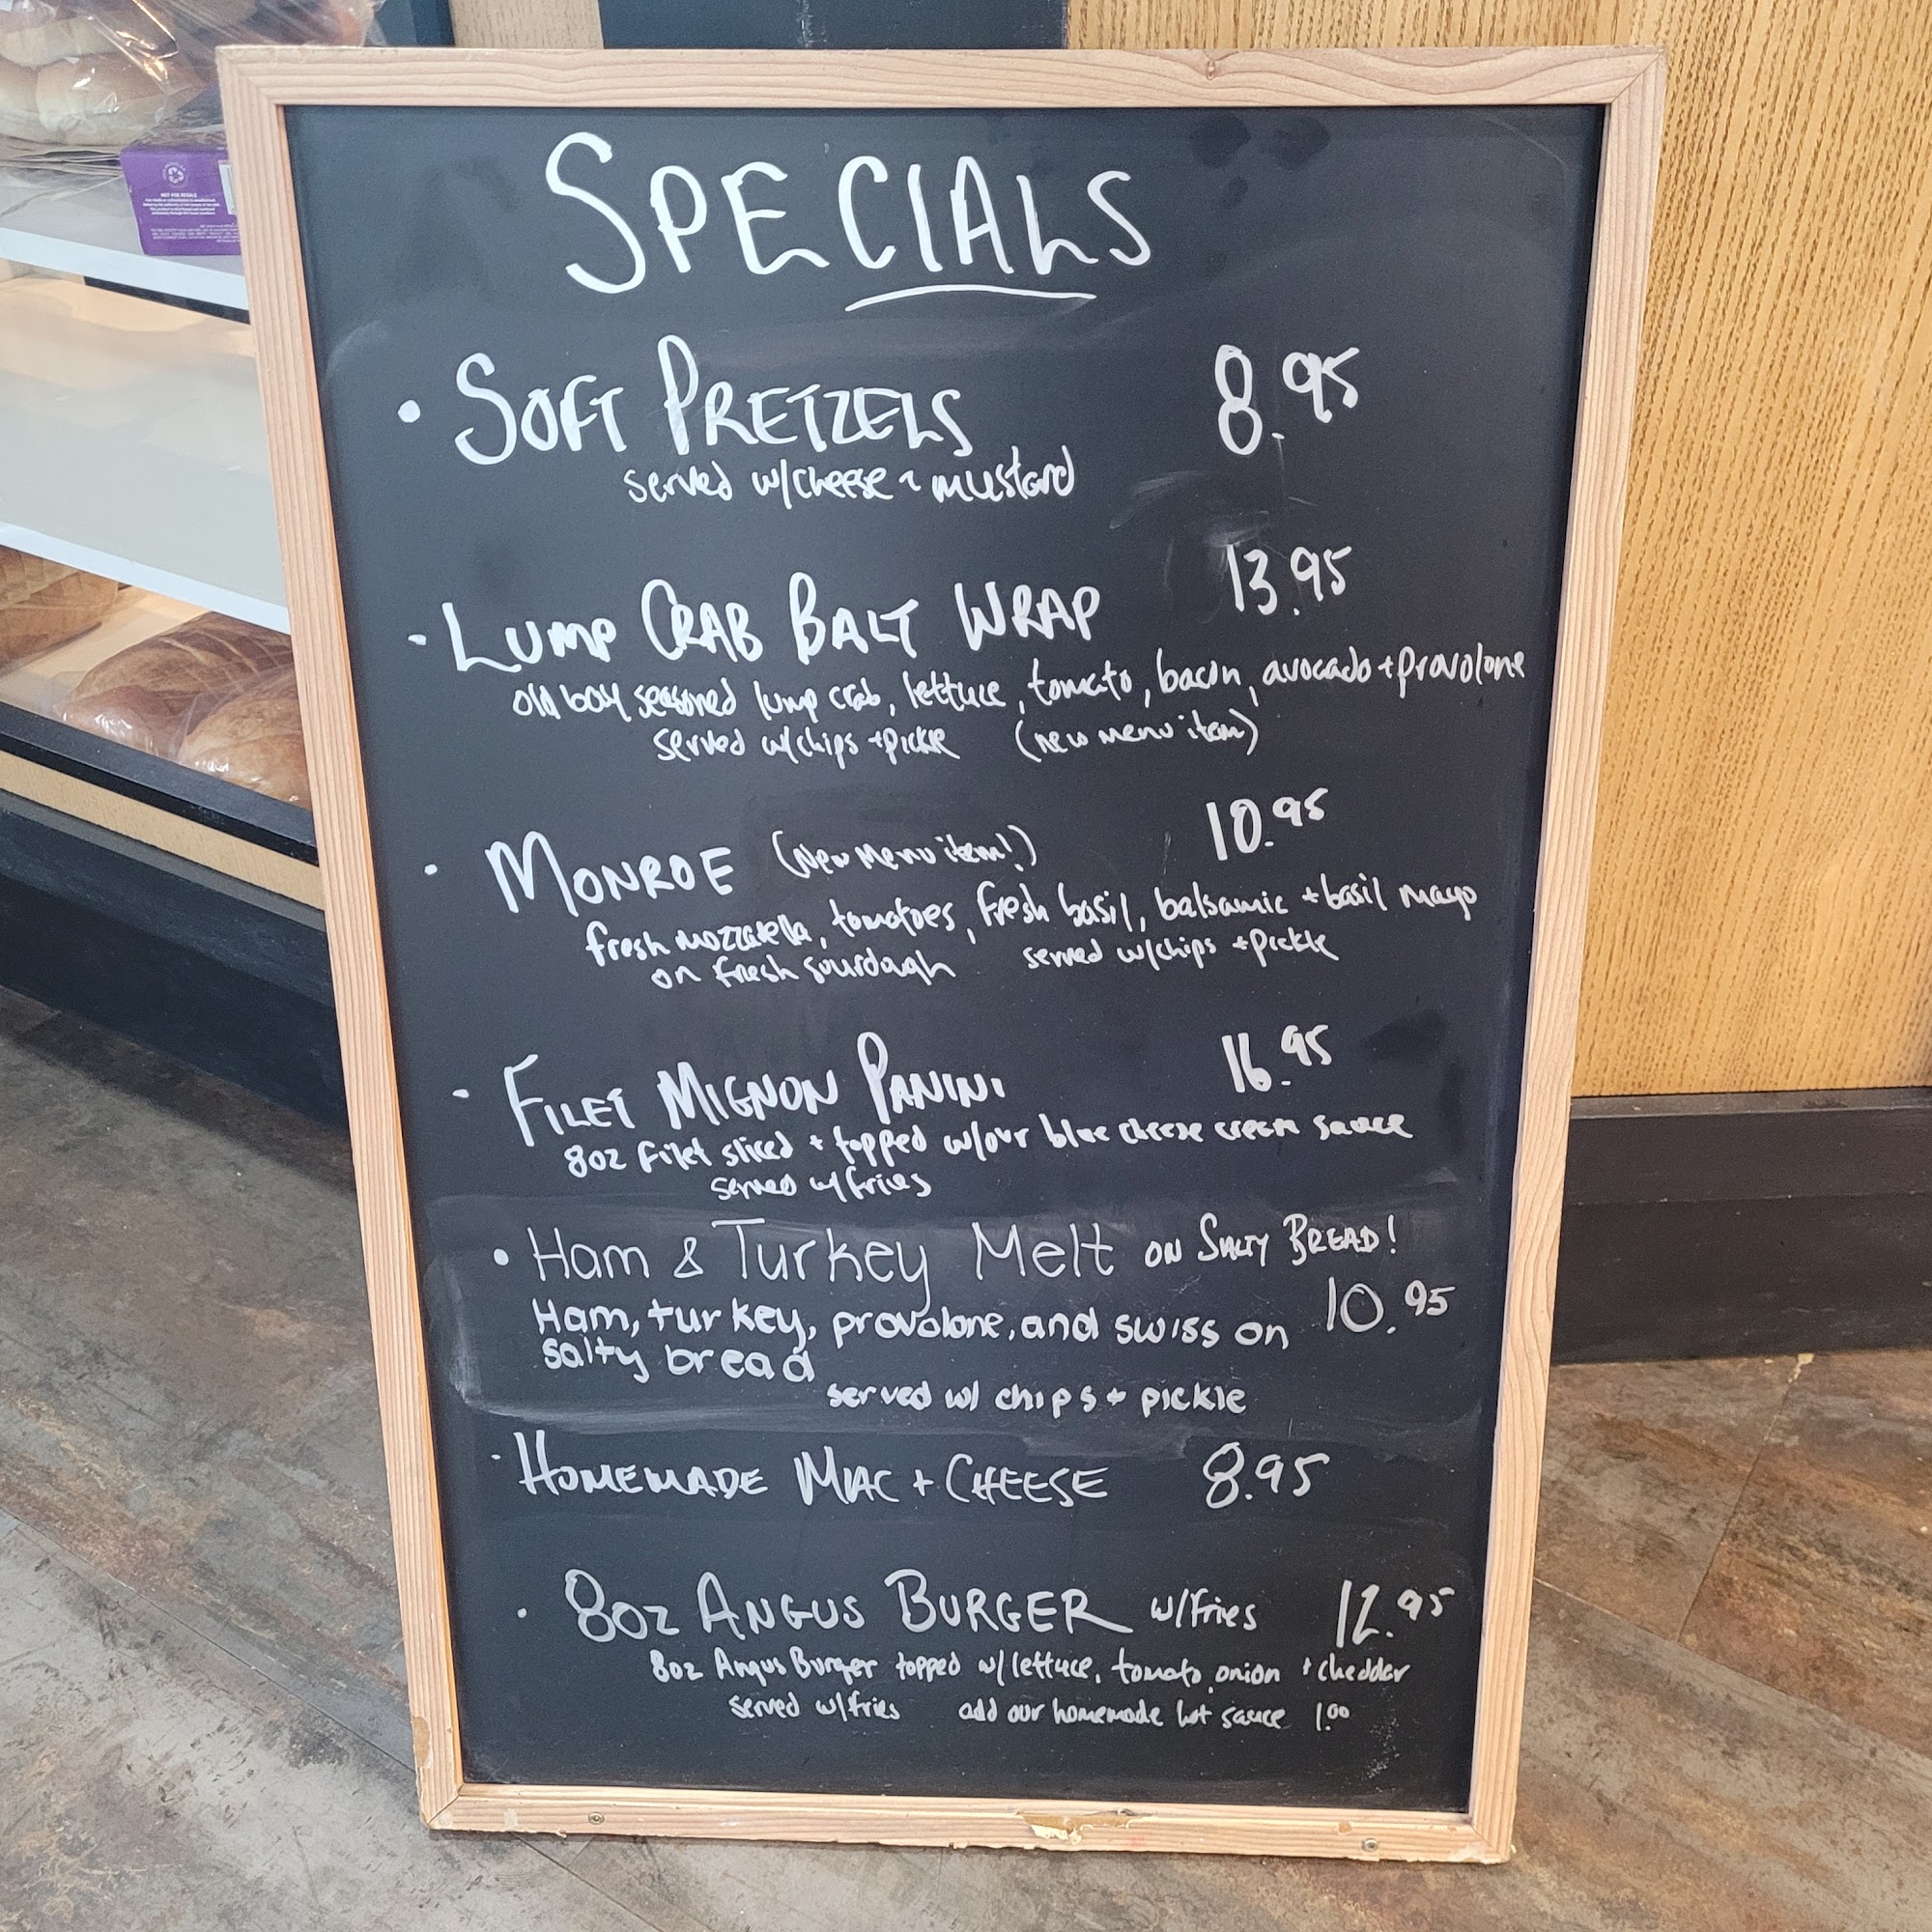 SPECIALS
• SOFT PRETZELS 8.95
served w/cheese + mustard
- LUMP CRAB BALT WRAP 13.95
old bay seasoned lump crab, lettuce, tomato, bacon, avocado + provolone
served w/chips + pickle (new menu item)
• MONROE (New Menu item!) 10.95
fresh mozzarella, tomatoes, fresh basil, balsamic + basil mayo
on fresh sourdagh served w/chips + pickle
- FILET MIGNON PANINI 16.95
8oz filet sliced + topped w/our blue cheese cream sauce
served w/fries
• Ham & Turkey Melt ON SALTY BREAD!
Ham, turkey, provolone, and swiss on 10.95
salty bread
served w/ chips + pickle
• HOMEMADE MAC + CHEESE 8.95
• 8oz ANGUS BURGER w/fries 12.95
8oz Angus Burger topped w/lettuce, tomato, onion + cheddar
served w/fries add our homemade hot sauce 1.00
NOT FOR RESALE